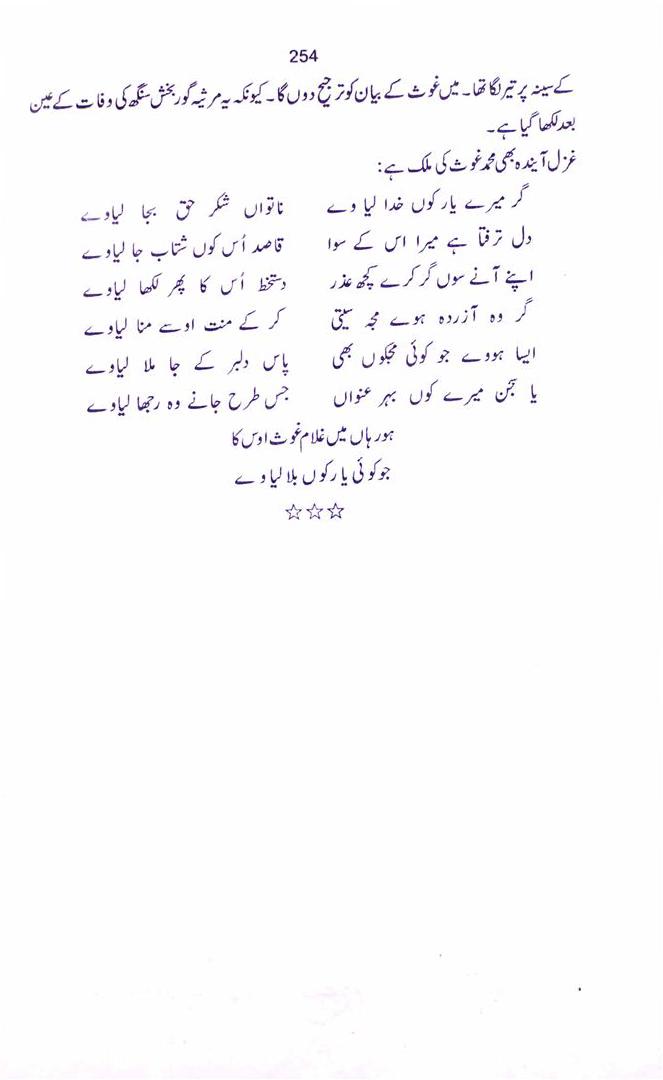 254
کے سینہ پر تیر لگا تھا۔ میں غوث کے بیان کو ترجیح دوں گا۔ کیونکہ یہ مرثیہ گور بخش سنگھ کی وفات کے عین
بعد لکھا گیا ہے۔
غزل آیندہ بھی محمد غوث کی ملک ہے:
گر میرے یار کوں خدا لیا وے ناتواں شکر حق بجا لیاوے
دل ترفتا ہے میرا اس کے سوا قاصد اُس کوں شتاب جا لیاوے
اپنے آنے سوں گر کرے کچھ عذر دستخط اُس کا پھر لکھا لیاوے
گر وہ آزردہ ہوے مجہ سیتی کر کے منت اوسے منا لیاوے
ایسا ہووے جو کوئی مجکوں بھی پاس دلبر کے جا ملا لیاوے
یا سجن میرے کوں بہر عنواں جس طرح جانے وہ رجھا لیاوے
ہور ہاں میں غلام غوث اوس کا
جو کوئی یار کوں بلا لیا وے
☆☆☆